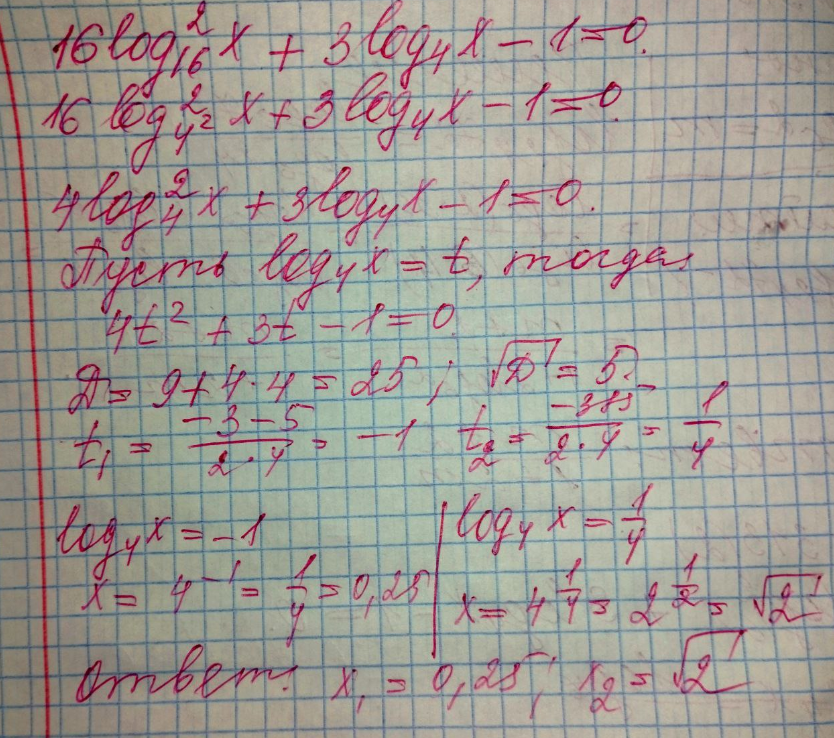 16log²₁₆x + 3log₄x − 1 = 0.
16 log²_{4²} x + 3log₄x − 1 = 0
4log²₄x + 3log₄x − 1 = 0.
Пусть log₄x = t, тогда
4t² + 3t − 1 = 0
Д = 9+4·4 = 25; √Д = 5.
t₁ = (−3−5)/(2·4) = −1 t₂ = (−3+5)/(2·4) = 1/4
log₄x = −1 | log₄x = 1/4
x = 4⁻¹ = 1/4 = 0,25 | x = 4^{1/4} = 2^{1/2} = √2
Ответ: x₁ = 0,25; x₂ = √2